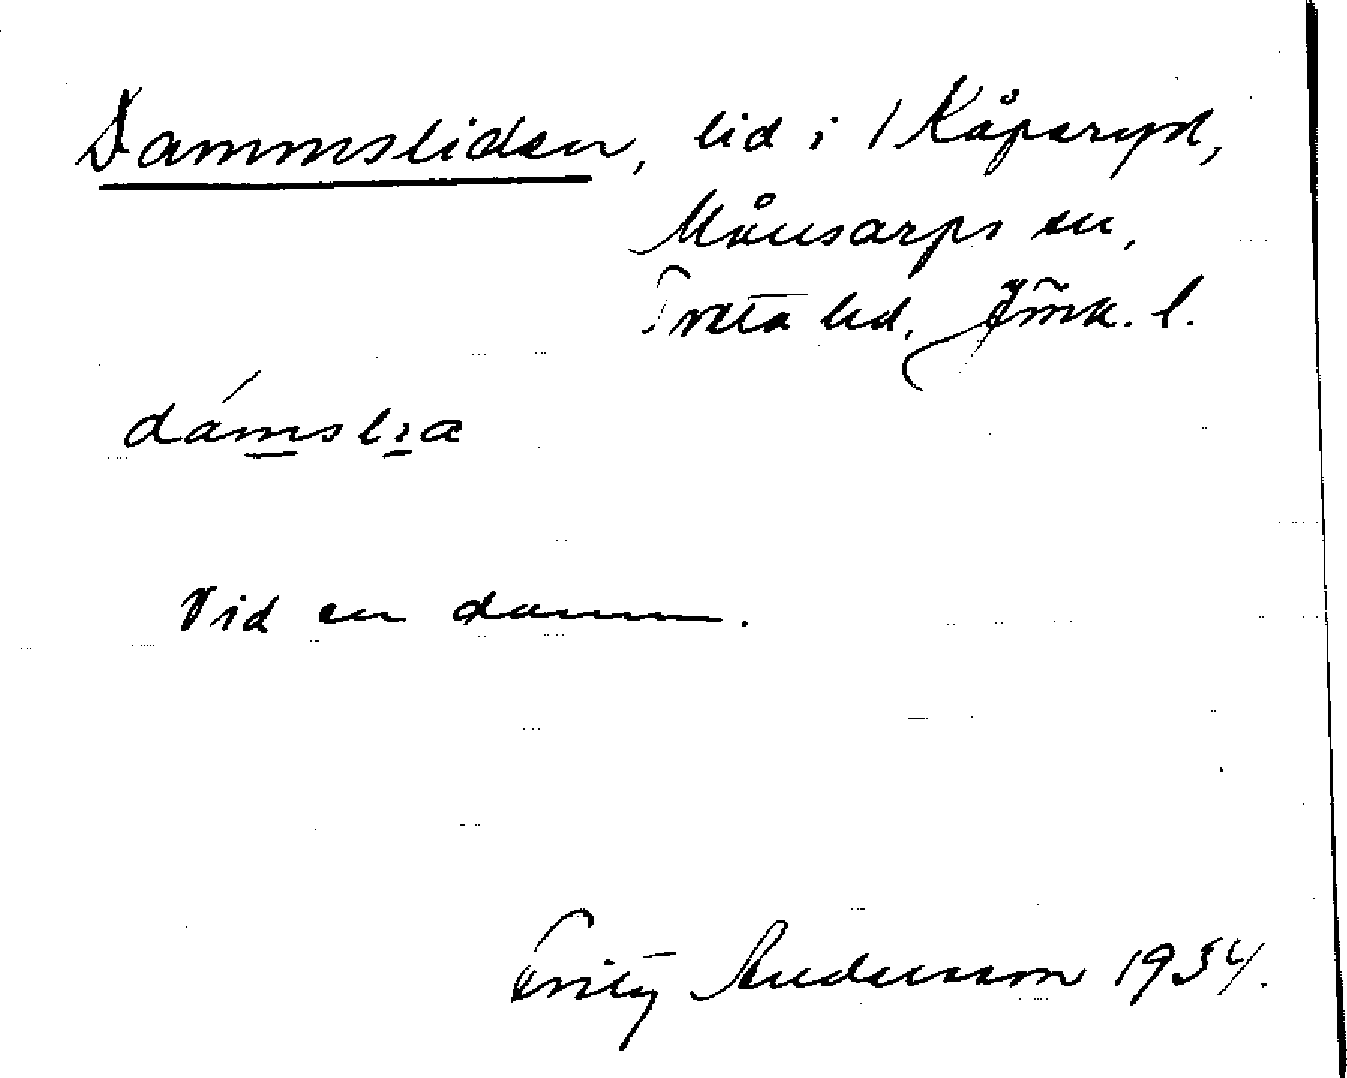 Dammsliden, lid i 1 Kåperyd,
Månsarps sn,
Tveta hd, Jmk. l.
dámslıa
Vid en damm.
Fritz Andersson 1934.